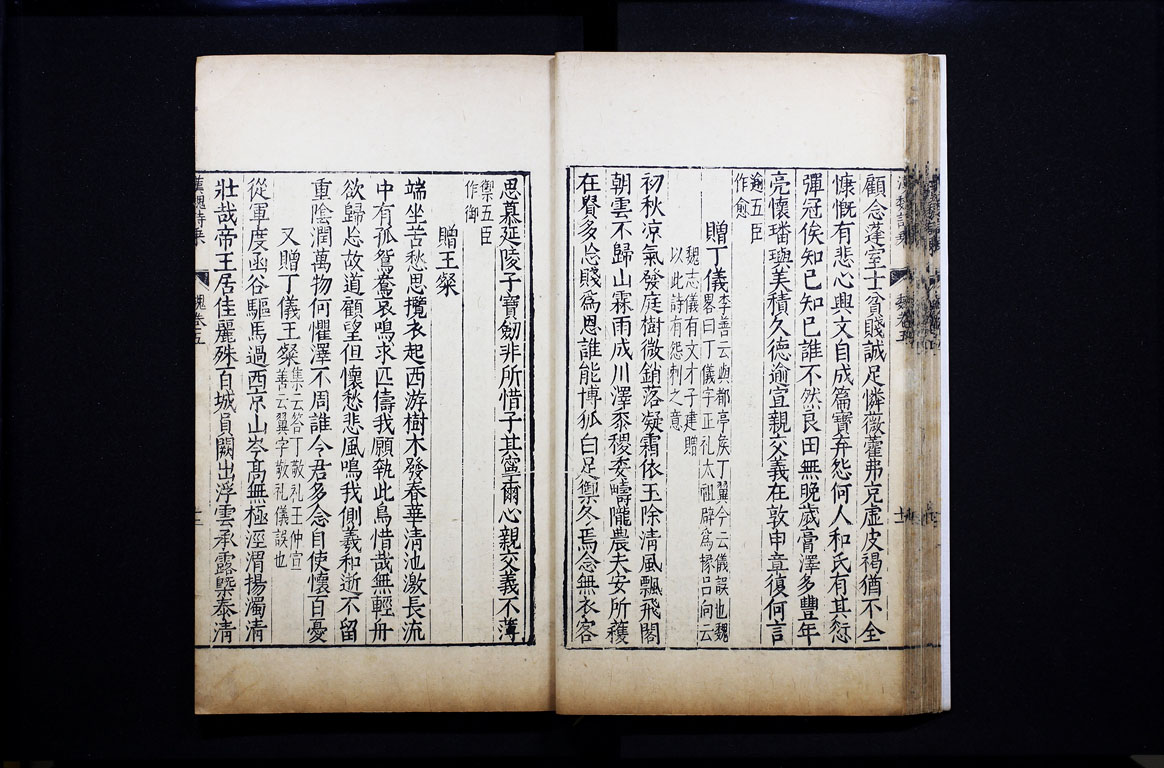 顧念蓬室士貧賤誠足憐薇藿弗充虛皮褐猶不全
慷慨有悲心興文自成篇寶弃怨何人和氏有其愆
彈冠俟知己知己誰不然良田無晚歲膏澤多豐年
亮懷璠璵美積久德逾宣親交義在敦申章復何言
逾五臣
作愈
贈丁儀
李善云集云與都亭侯丁翼今云儀誤也魏
畧曰丁儀字正礼太祖辟為掾呂向云
魏志儀有文才子建贈
以此詩有怨刺之意
初秋涼氣發庭樹微銷落凝霜依玉除清風飄飛閣
朝雲不歸山霖雨成川澤黍稷委疇隴農夫安所穫
在貴多忘賤爲恩誰能博狐白足禦冬焉念無衣客
思慕延陵子寶劒非所惜子其寧爾心親交義不薄
禦五臣
作御
贈王粲
端坐苦愁思攬衣起西游樹木發春華清池激長流
中有孤鴛鴦哀鳴求匹儔我願執此鳥惜哉無輕舟
欲歸忘故道顧望但懷愁悲風鳴我側羲和逝不留
重陰潤萬物何懼澤不周誰令君多念自使懷百憂
又贈丁儀王粲
集云答丁敬礼王仲宣
善云翼字敬礼儀誤也
從軍度函谷驅馬過西京山岑高無極涇渭揚濁清
壯哉帝王居佳麗殊百城員闕出浮雲承露槩泰清
漢魏詩集
魏卷五